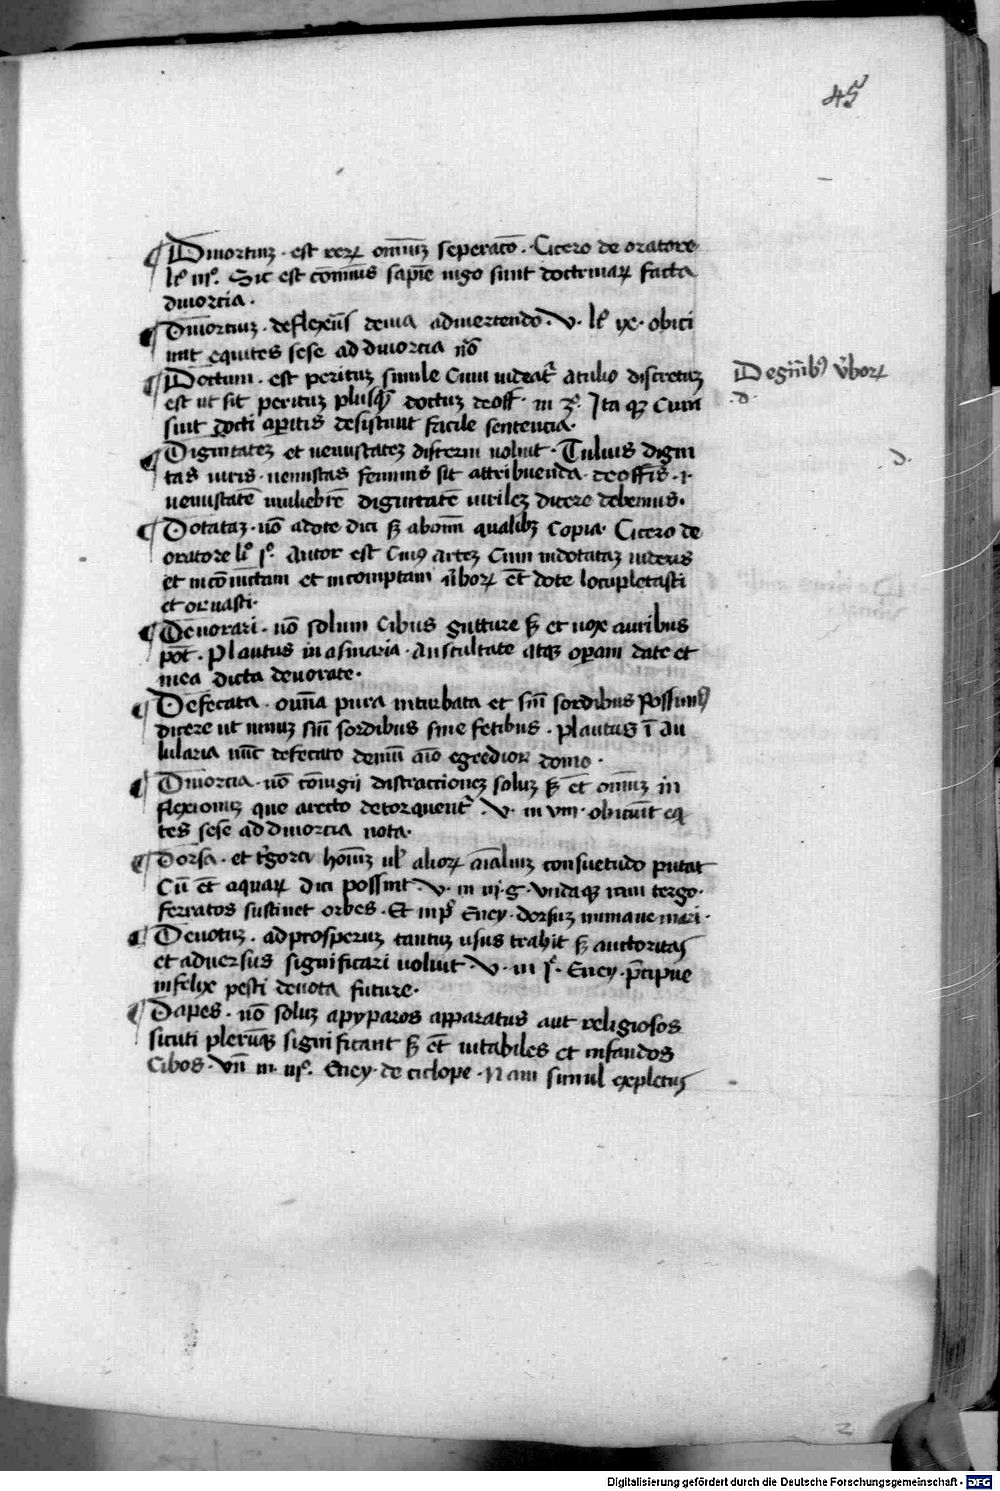 45
Diuortiuʒ · est reꝝ om̄iuʒ seperac̄o · Cicero de oratore
lꝰ iijº. Sic est com̄unis sapīe iugo sunt doctrinaꝝ facta
diuortia ·
Diuortiuʒ · deflexūs deuia aduertendo · V · lꝰ ix · obici
unt equites sese ad diuortia nō
Doctum · est perituʒ simile Cum uideat᷑ atulio discretuʒ
est ut sit perituʒ plusq̄ʒ doctuʒ deoff · in 3º. Ita qʒ Cum
sint docti aperitis desistunt facile sentencia ·
Dignitateʒ et uenustateʒ differri uoluit · Tulius digni
tas uiris · uenustas feminis sit attribuenda · deoffis · i ·
uenustatē muliebrē dignitatē uirileʒ dicere debemus ·
Degn̄ibꝰ v̄boꝝ
· d ·
d ·
Dotataʒ · nō adote dici sʒ abomī qualibʒ Copia · Cicero de
oratore lº jº. Autor est Cuiꝰ arteʒ Cum indotataʒ uideris
et inconiuctam et incomptam v̄boꝝ et̄ dote locupletasti
et ornasti ·
Deuorari · nō solum Cibus gutture sʒ et uoxe auribus
pōt · Plautus in asinaria · Auscultate atqʒ operam date et
mea dicta deuorate ·
Defecata · oūa pura inturbata et sin̄ sordibus Possimꝰ
dicere ut uinuʒ sin̄ sordibus sine fetibus · plautus ī au
lularia nūc defecato demū aīo egredior domo ·
Diuorcia · nō coniugij distractioneʒ soluʒ sʒ et̄ om̄iuʒ in
flexioniʒ que arecto detorquent᷑ · V · in viij · obiciūt eq̄
tes sese ad diuorcia nota ·
Dorsa · et t᷑gora hoīuʒ ul᷑ alioꝝ aīaliuʒ consuetudo putat
Cū et̄ aquaꝝ dici possint · V · in iij · g · Vndaqʒ iam tergo ·
ferratos sustinet orbes · Et in pº Eney · dorsuʒ inmane mari ·
Deuotuʒ · adprosperuʒ tantuʒ usus trahit sʒ auctoritas
et aduersus significari uoluit · V · in jº · Eney · p̄cipue
infelixe pesti deuota future ·
Dapes · nō soluʒ apyparos apparatus aut religiosos
sicuti plerūqʒ significant sʒ et̄ uitabiles et infandos
Cibos · Vn̄ in · iijº. Eney · de ciclope · Nam simul expletus
2
Digitalisierung gefördert durch die Deutsche Forschungsgemeinschaft - DFG